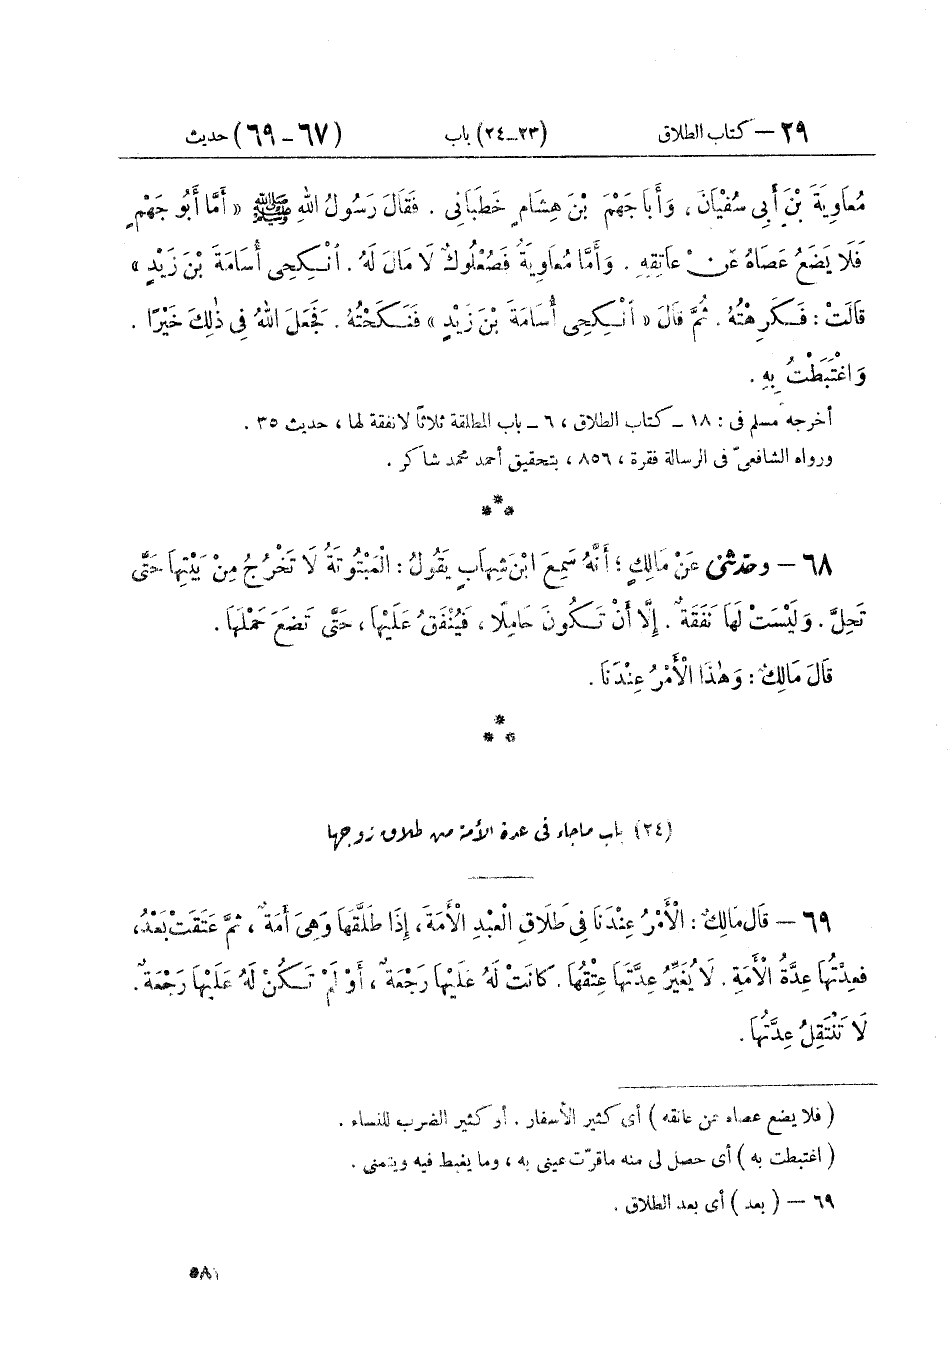 ٢٩ – كتاب الطلاق (٢٣–٢٤) باب (٦٧–٦٩) حديث
مُعَاوِيَةَ بْنَ أَبِي سُفْيَانَ، وَأَبَا جَهْمَ بْنَ هِشَامٍ خَطَبَانِى. فَقَالَ رَسُولُ اللهِ ﷺ « أَمَّا أَبُو جَهْمٍ
فَلَا يَضَعُ عَصَاهُ عَنْ عَاتِقِهِ. وَأَمَّا مُعَاوِيَةُ فَصُعْلُوكٌ لَا مَالَ لَهُ. انْكِحِى أُسَامَةَ بْنَ زَيْدٍ »
قَالَتْ: فَكَرِهْتُهُ. ثُمَّ قَالَ « انْكِحِى أُسَامَةَ بْنَ زَيْدٍ » فَنَكَحْتُهُ. فَجَعَلَ اللهُ فِى ذٰلِكَ خَيْرًا.
وَاغْتَبَطْتُ بِهِ.
أخرجه مسلم فى: ١٨ ـ كتاب الطلاق، ٦ ـ باب المطلقة ثلاثاً لا نفقة لها، حديث ٣٥.
ورواه الشافعىّ فى الرسالة فقرة، ٨٥٦، بتحقيق أحمد محمد شاكر.
***
٦٨ – وحدثنى عَنْ مَالِكٍ؛ أَنَّهُ سَمِعَ ابْنَ شِهَابٍ يَقُولُ: الْمَبْتُوتَةُ لَا تَخْرُجُ مِنْ بَيْتِهَا حَتَّى
تَحِلَّ. وَلَيْسَتْ لَهَا نَفَقَةٌ. إِلَّا أَنْ تَكُونَ حَامِلًا، فَيُنْفَقُ عَلَيْهَا، حَتَّى تَضَعَ حَمْلَهَا.
قَالَ مَالِكٌ: وَهٰذَا الْأَمْرُ عِنْدَنَا.
***
(٢٤) باب ماجاء فى عدة الأمة من طلاق زوجها
٦٩ – قَالَ مَالِكٌ: الْأَمْرُ عِنْدَنَا فِى طَلَاقِ الْعَبْدِ الْأَمَةَ، إِذَا طَلَّقَهَا وَهِىَ أَمَةٌ، ثُمَّ عَتَقَتْ بَعْدُ،
فَعِدَّتُهَا عِدَّةُ الْأَمَةِ. لَا يُغَيِّرُ عِدَّتَهَا عِتْقُهَا. كَانَتْ لَهُ عَلَيْهَا رَجْعَةٌ، أَوْ لَمْ تَكُنْ لَهُ عَلَيْهَا رَجْعَةٌ.
لَا تَنْتَقِلُ عِدَّتُهَا.
( فلا يضع عصاه عن عاتقه ) أى كثير الأسفار. أو كثير الضرب للنساء.
( اغتبطت به ) أى حصل لى منه ماقرّت عينى به، وما يغبط فيه ويتمنى.
٦٩ – ( بعد ) أى بعد الطلاق.
٥٨١